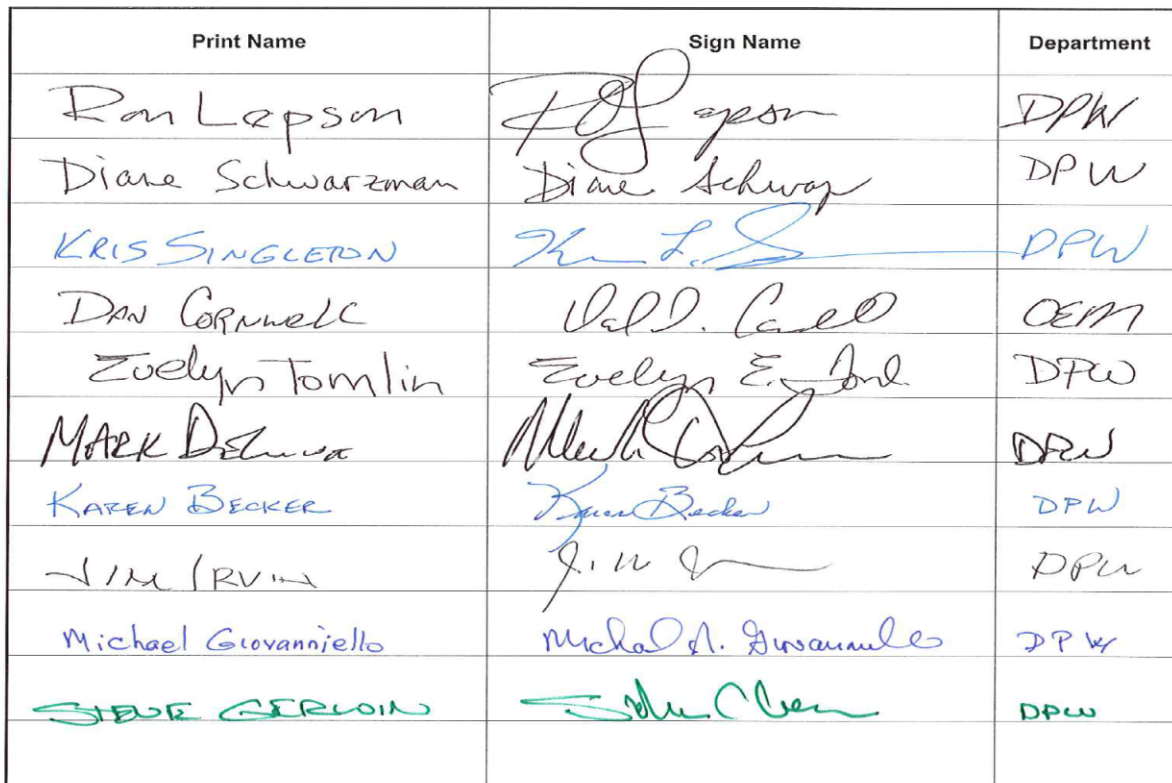 Print Name Sign Name Department
Ron Lepson DPW
Diane Schwarzman Diane Schwar DPW
KRIS SINGLETON DPW
DAN CORNWELL OEM
Evelyn Tomlin Evelyn E. DPW
MARK DPW
KAREN BECKER Karen Becker DPW
JIM IRVIN DPW
Michael Giovanniello Michael A. Giovanniello DPW
STEVE GERWIN DPW